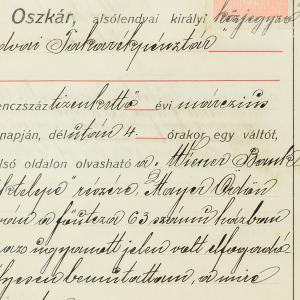 Oszkár, alsólendvai királyi közjegyző
dvai Takarékpénztár
enczszáz tizenkettő évi márczius
napján, délután 4. órakor egy váltót,
lső oldalon olvasható a "Wiener Bank
ktelepe" részére, Mayer Ödön
a főutcza 63 számú házban
az ugyanott jelen volt elfogadó
lyesen bemutattam, a mire